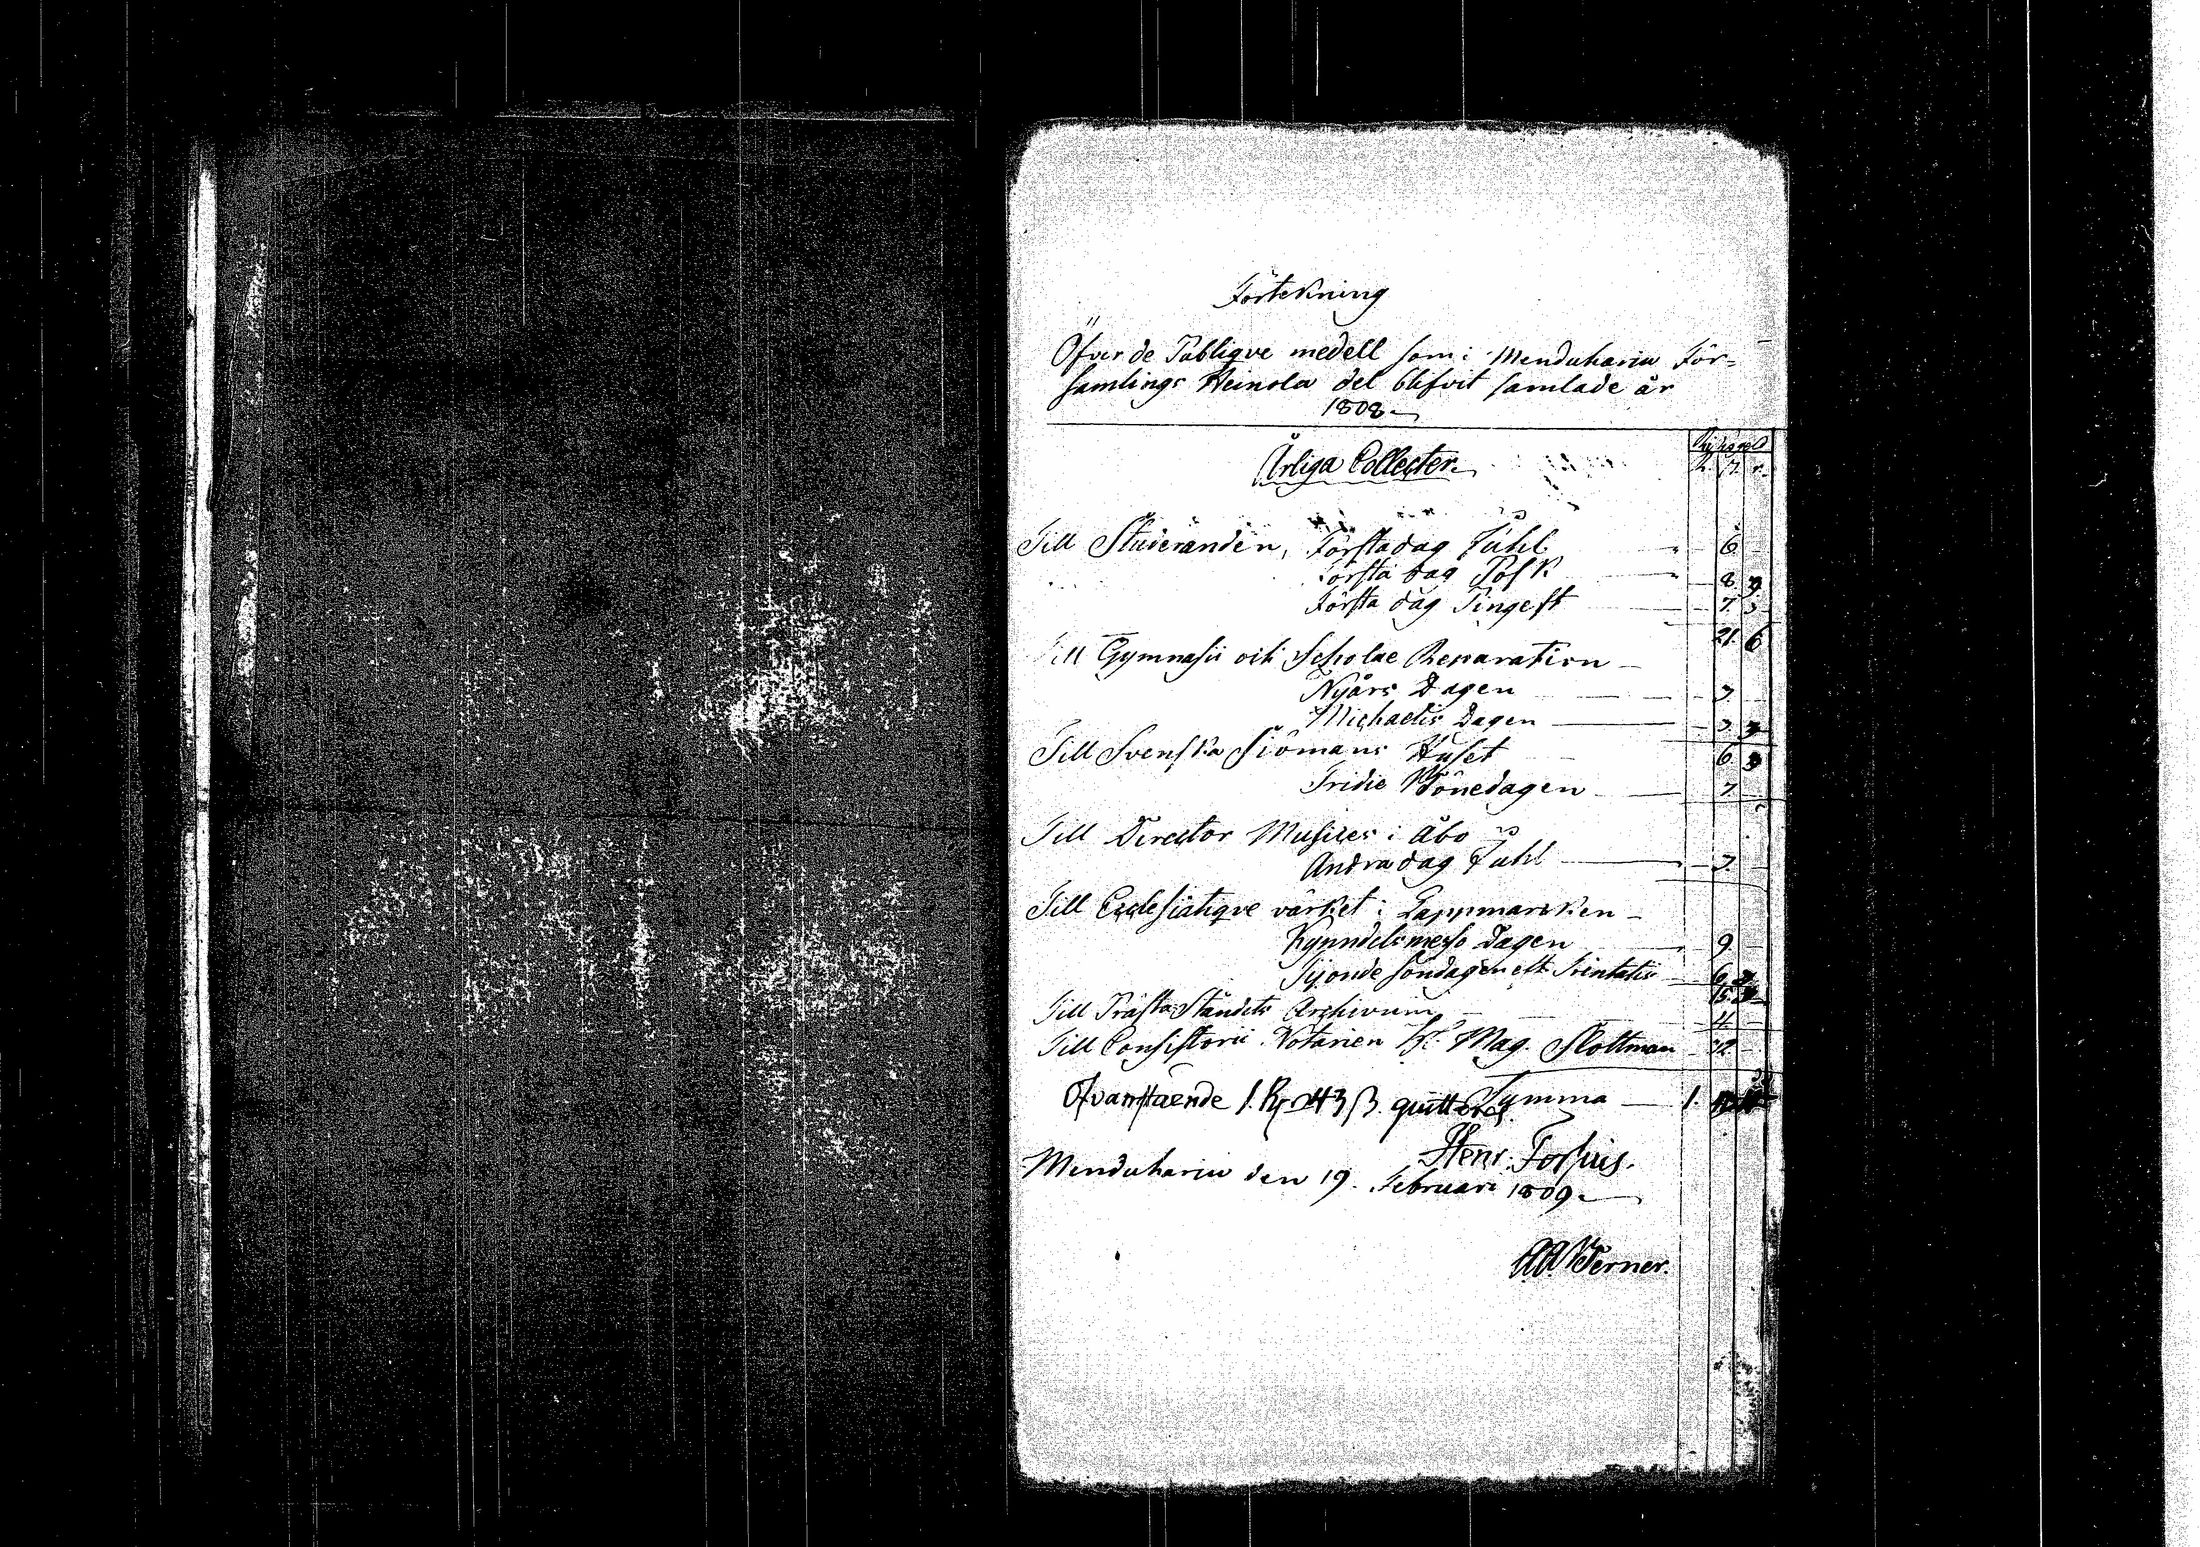 Förtekning
Öfver de Publiqve medell som i Menduhariu För-
samlings Heinola del blifvit samlade år
1808.
Riksgeld
R. ß. r.
Årliga Collecter.
Till Studeranden, Förstadag Juhl 6
Första dag Posk 8 3
Första dag Pingest 7 3
21. 6
Till Gymnasii och Scholae Reparation
Nyårs Dagen 3
Michaelis Dagen 3 3
Till Svenska Siömans Huset 6 3
Tridie Bönedagen 7
Till Director Musices i Åbo
Andra dag Juhl 3
Till Ecclesiatiqve värket i Lappmarcken
Kynndelsmesso Dagen 9
Sjonde söndagen eft Trintatis 6
15
Till Prästa Ståndets Archivum 4
Till Consistorii Notarien Hr Mag. Slottman 12
Summa 1.
Ofvanstående 1. Rd 43 ß. quitteras
Henr. Forsius.
Menduhariu den 19. Februari 1809.